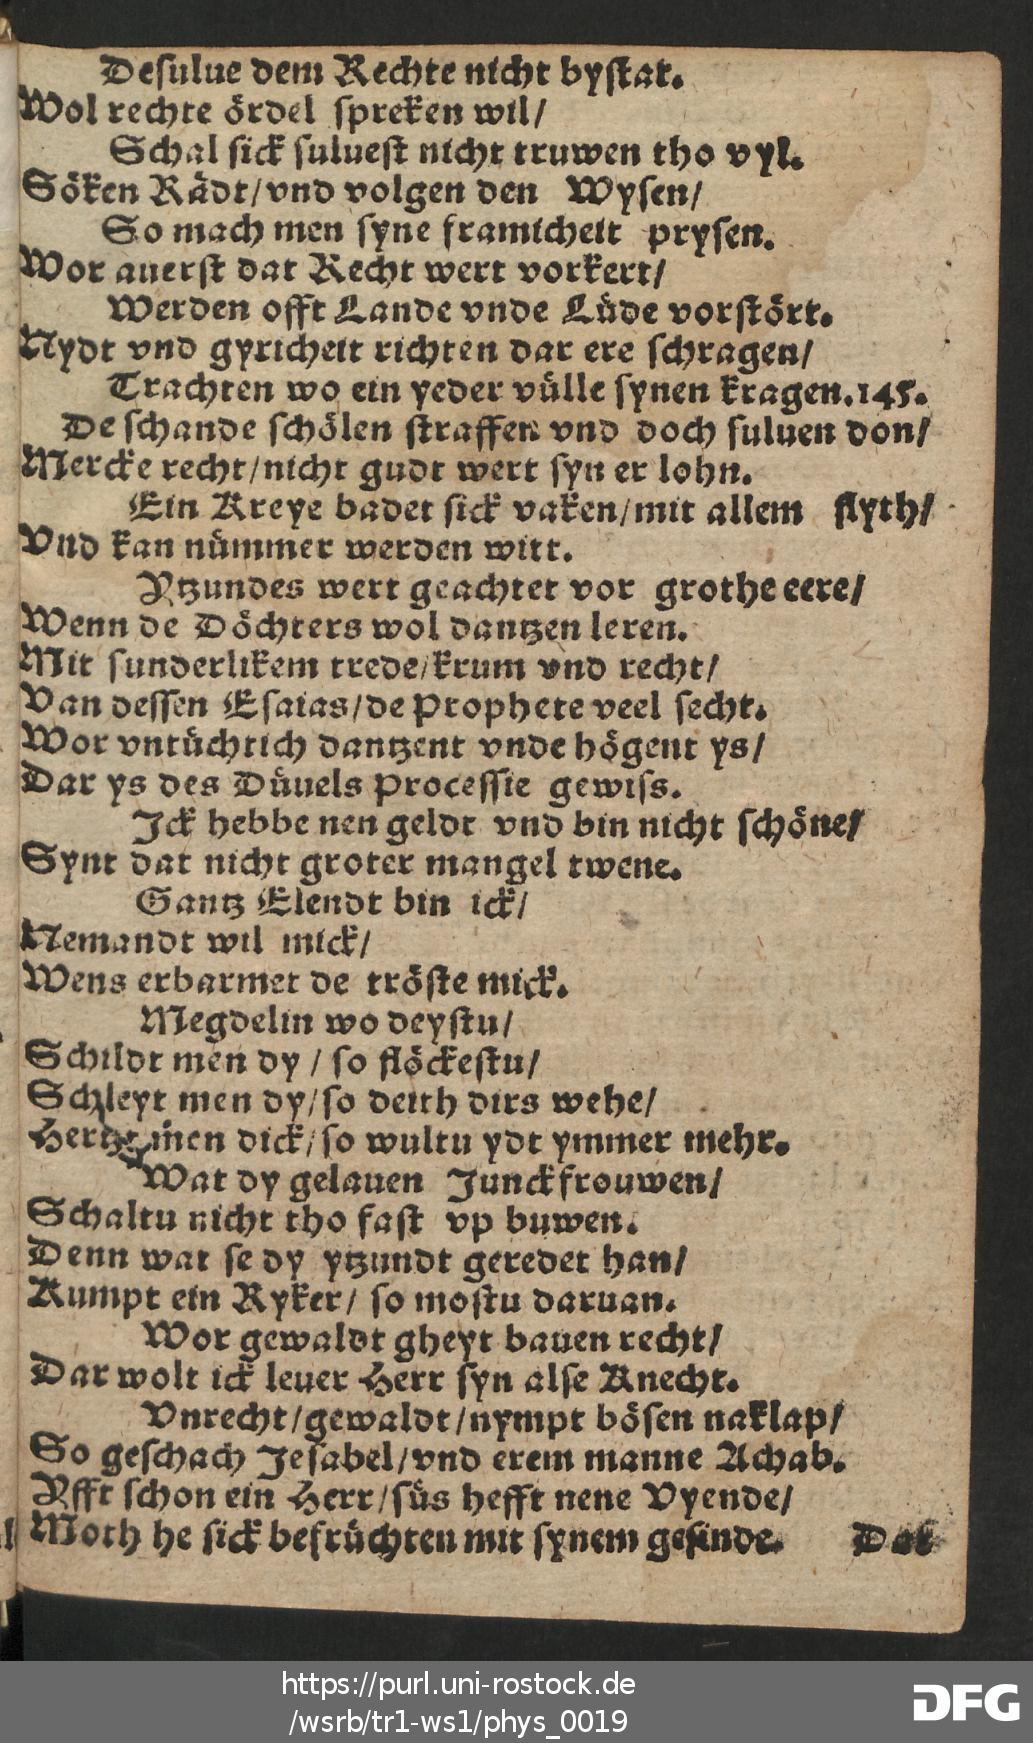 Desulue dem Rechte nicht bystat.
Wol rechte ördel spreken wil/
Schal sick suluest nicht truwen tho vyl.
Söken Rädt/vnd volgen den Wysen/
So mach men syne framicheit prysen.
Wor auerst dat Recht wert vorkert/
Werden offt Lande vnde Lüde vorstört.
Nydt vnd gyricheit richten dar ere schragen/
Trachten wo ein yeder vülle synen kragen.145.
De schande schölen straffen vnd doch suluen don/
Mercke recht/nicht gudt wert syn er lohn.
Ein Kreye badet sick vaken/mit allem flyth/
Vnd kan nümmer werden witt.
Ytzundes wert geachtet vor grothe eere/
Wenn de Döchters wol dantzen leren.
Mit sunderlikem trede/krum vnd recht/
Van dessen Esaias/de Prophete veel secht.
Wor vntüchtich dantzent vnde högent ys/
Dar ys des Düuels Processie gewiss.
Ick hebbe nen geldt vnd bin nicht schöne/
Synt dat nicht groter mangel twene.
Gantz Elendt bin ick/
Nemandt wil mick/
Wens erbarmet de tröste mick.
Megdelin wo deystu/
Schildt men dy / so flöckestu/
Schleyt men dy/so deith dirs wehe/
Hertzet men dick/so wultu ydt ymmer mehr.
Wat dy gelauen Junckfrouwen/
Schaltu nicht tho fast vp buwen.
Denn wat se dy ytzundt geredet han/
Kumpt ein Ryker/ so mostu daruan.
Wor gewaldt gheyt bauen recht/
Dar wolt ick leuer Herr syn alse Knecht.
Vnrecht/gewaldt/nympt bösen naklap/
So geschach Jesabel/vnd erem manne Achab.
Yfft schon ein Herr/süs hefft nene Vyende/
Moth he sick befrüchten mit synem gesinde. Dat
https://purl.uni-rostock.de
/wsrb/tr1-ws1/phys_0019
DFG